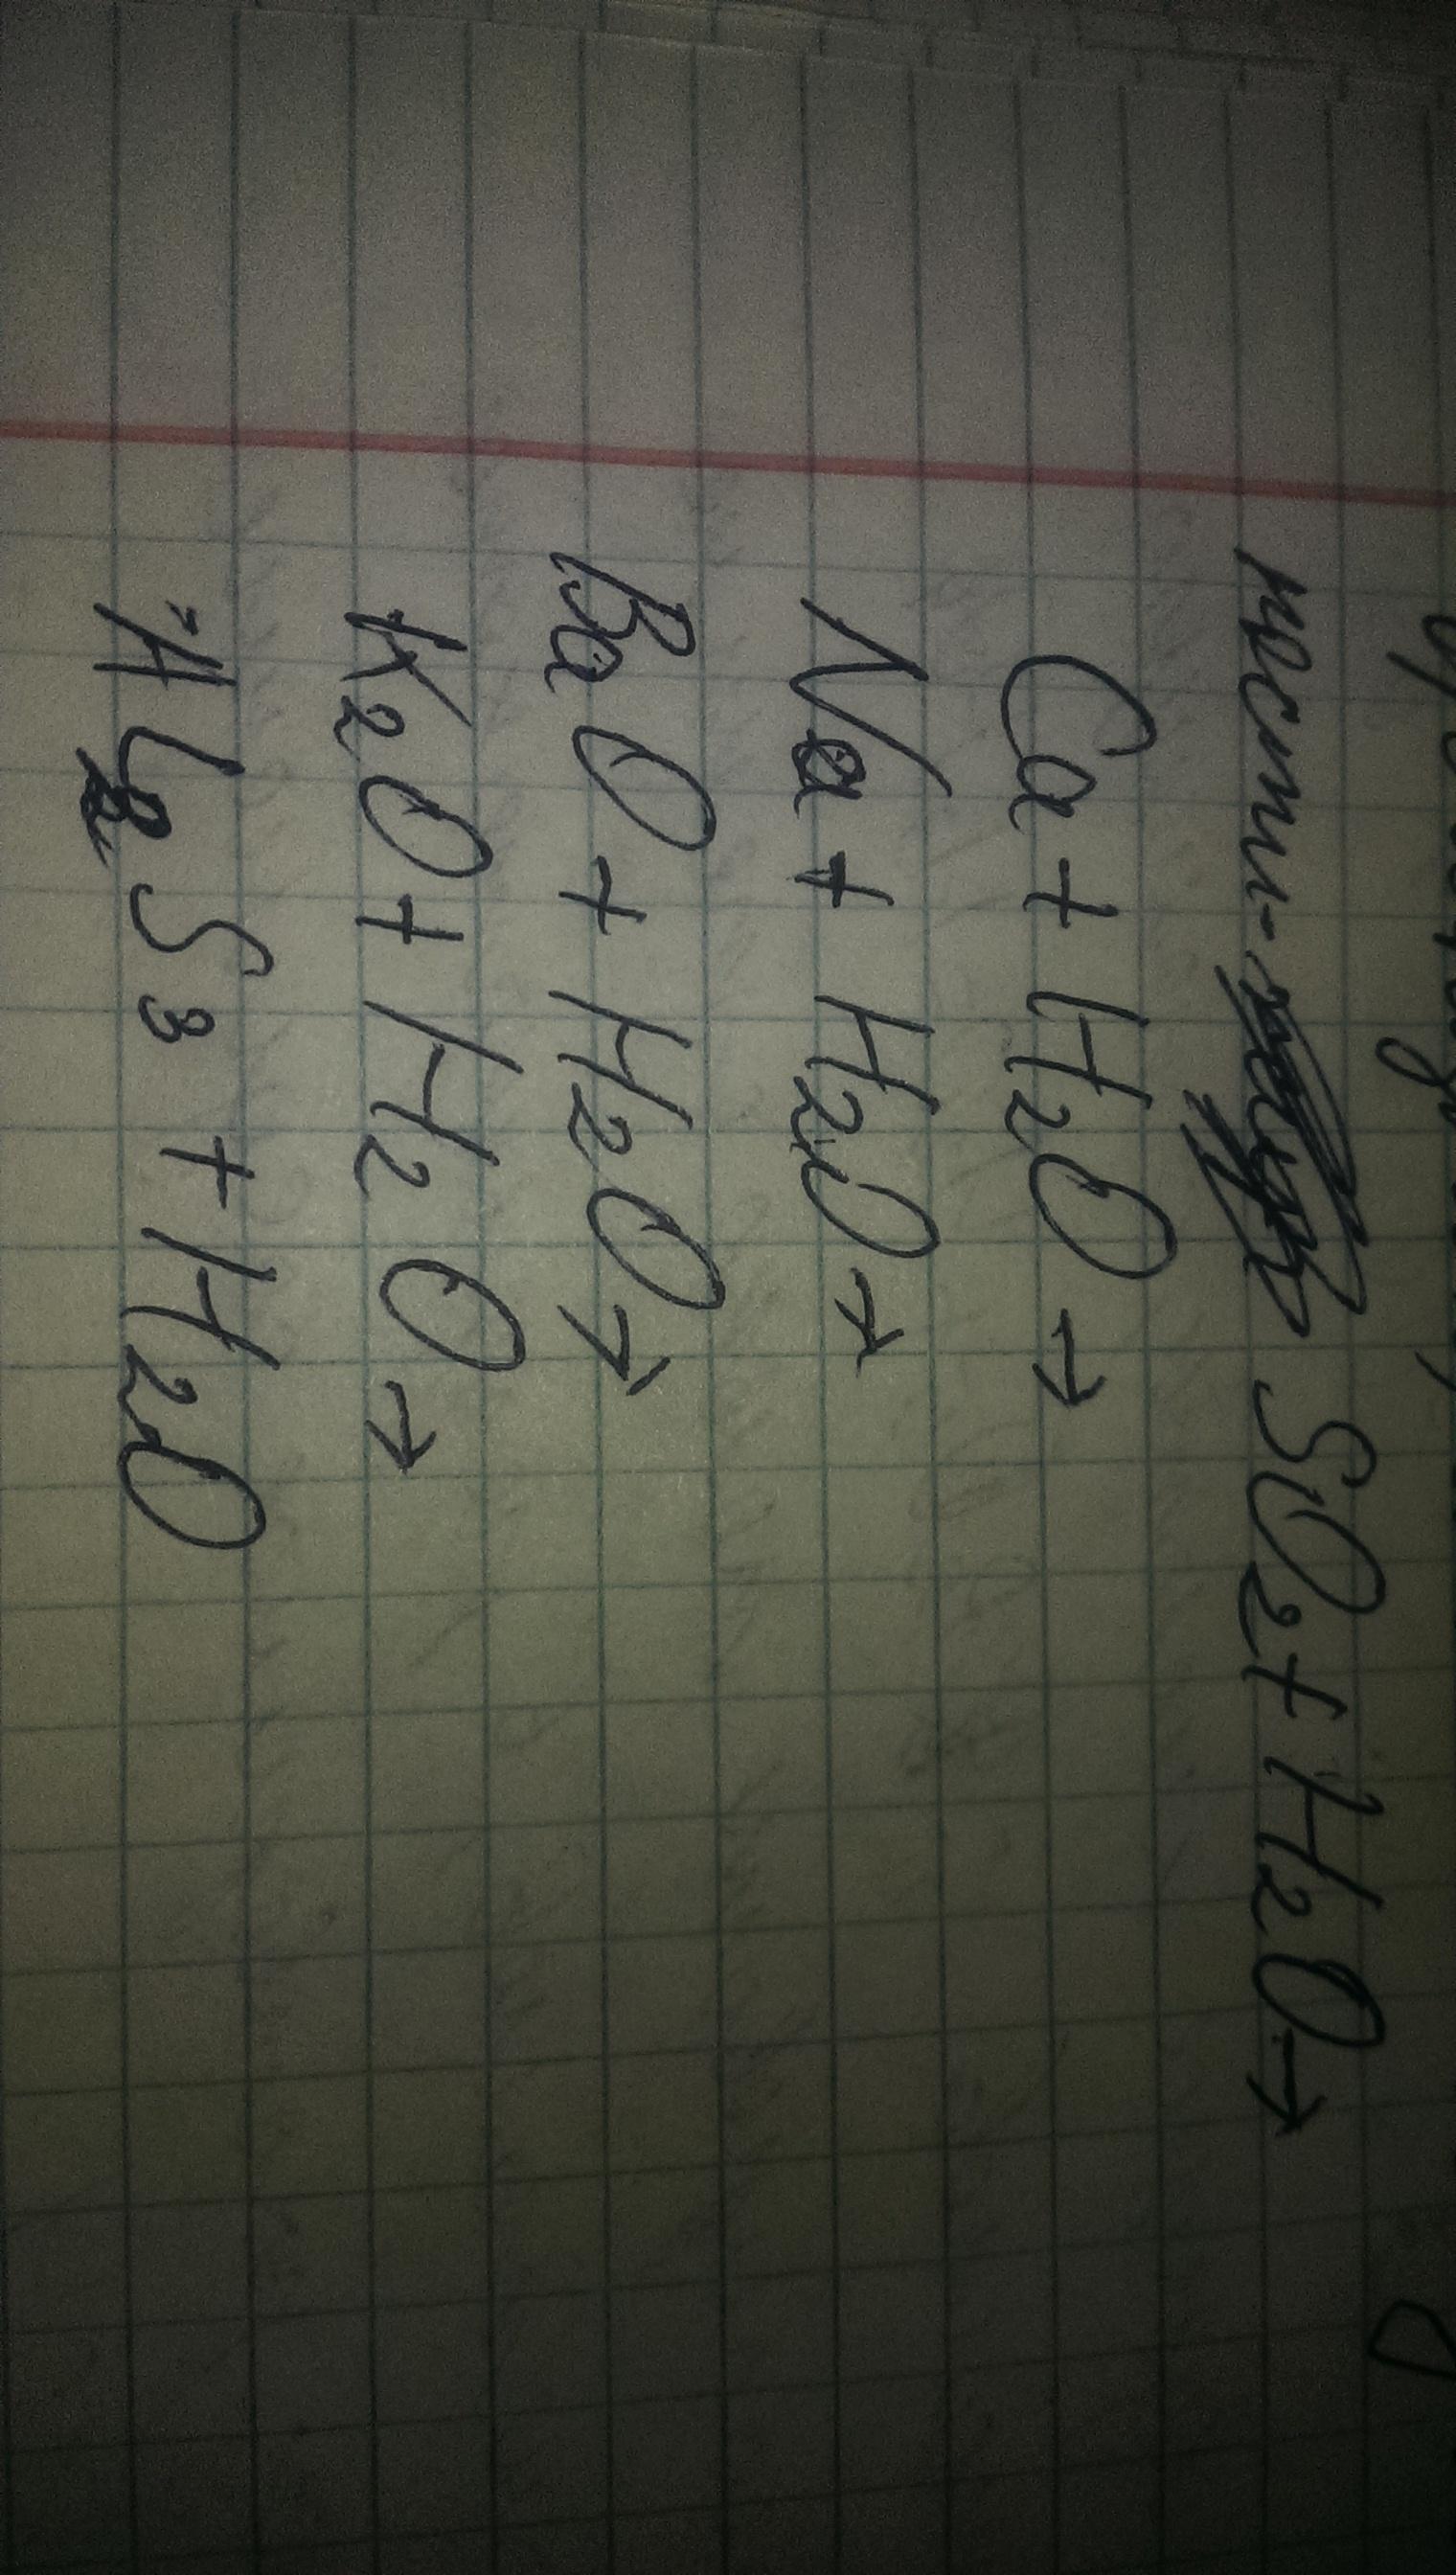 ности- SO₂ + H₂O →
Ca + H₂O →
Na + H₂O →
BaO + H₂O →
K₂O + H₂O →
Al₂S₃ + H₂O